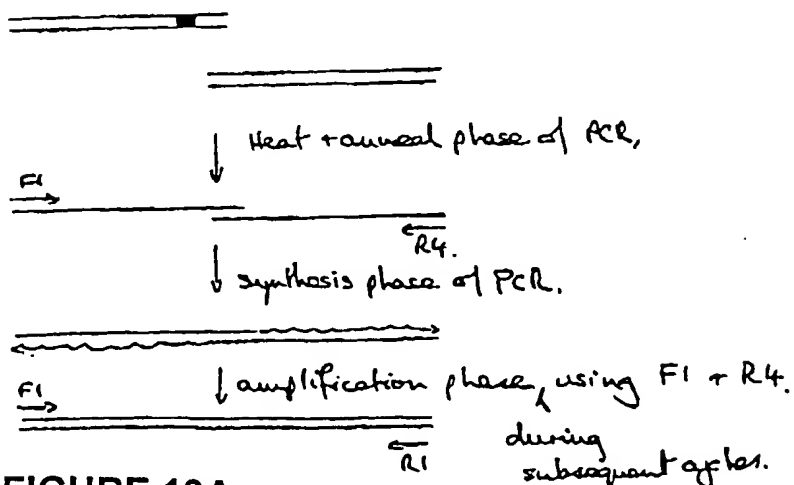 Heat + anneal phase of PCR,
F1
R4.
synthesis phase of PCR.
amplification phase, using F1 + R4.
F1
during
R1
subsequent cycles.
FIGURE 10A